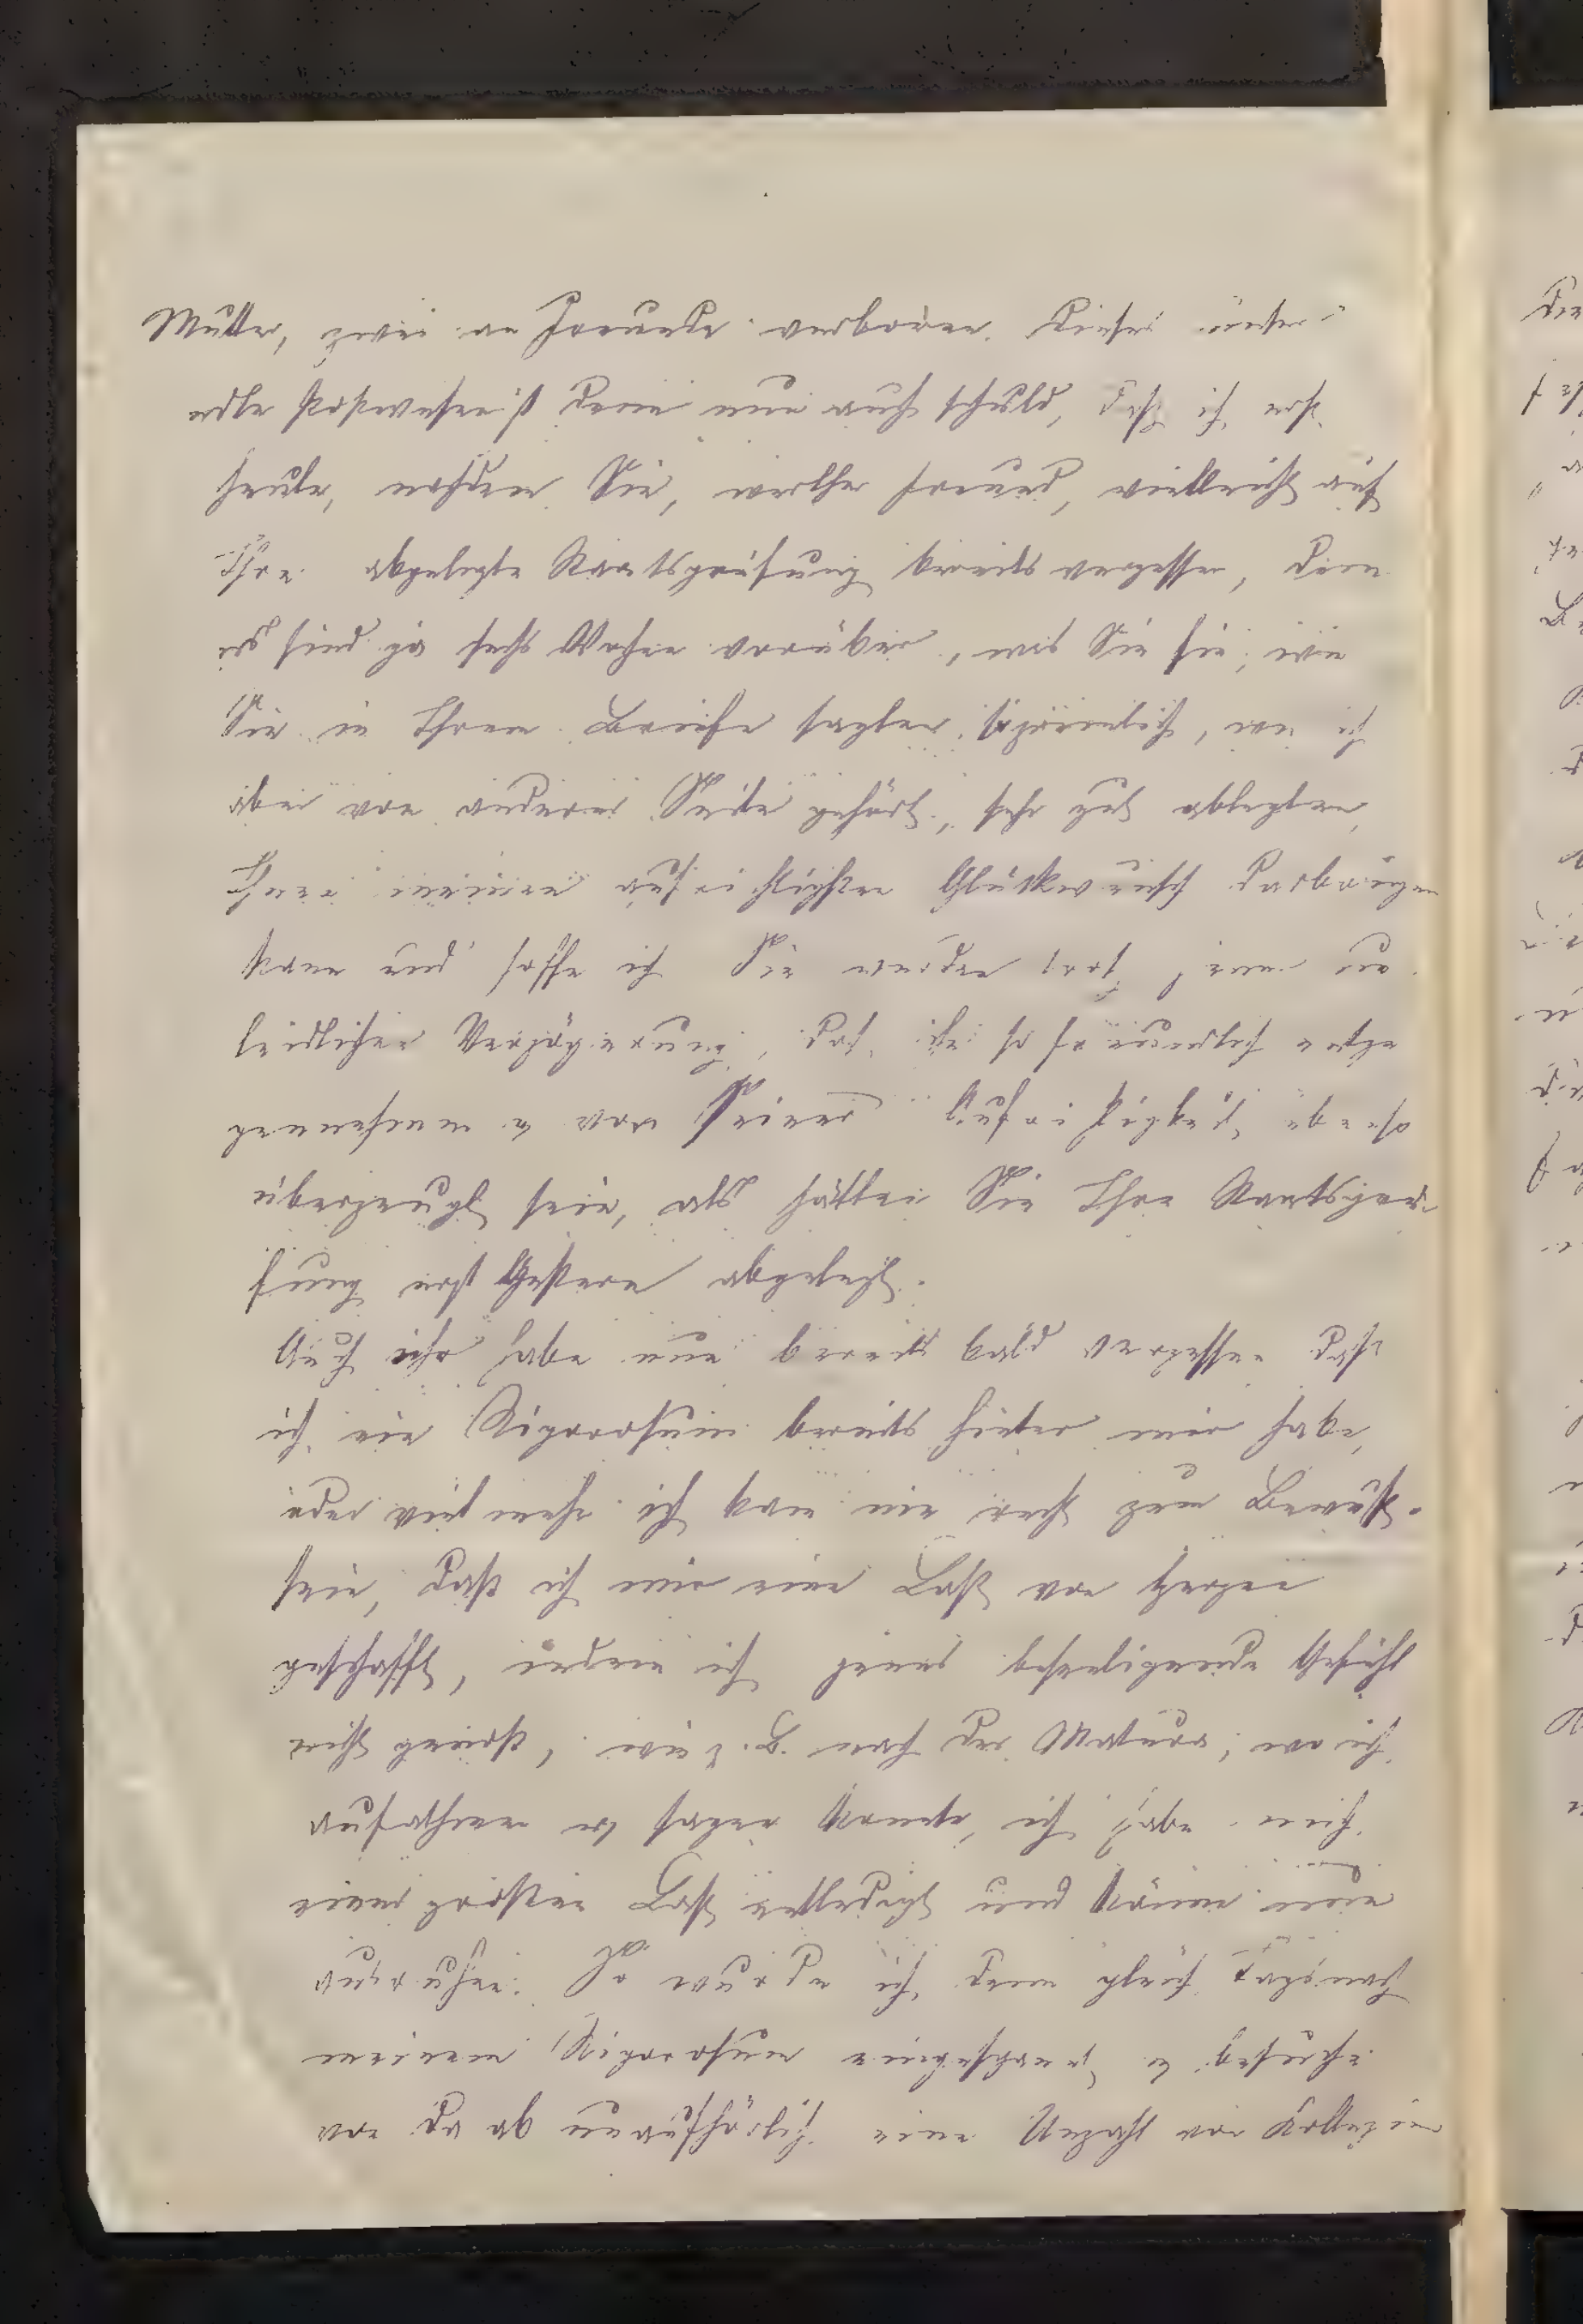 Mutter, zwei an Freunde verloren. Dieses unser
edle Postwesen ist denn nun auch schuld, daß ich erst
heute, nachdem Sie, werther Freund, vielleicht auf
Ihre abgelegte Staatsprüfung bereits vergessen, denn
es sind ja sechs Wochen vorüber, was Sie sie, wie
Sie in Ihrem Briefe sagten, ziemlich, wie ich
aber von anderer Seite gehört, sehr gut ablegten,
Ihnen meinen aufrichtigsten Glückwunsch darbringen
kann und hoffe ich Sie werden trotz jener un
leidlichen Verzögerung, das so freundlich entge
gennehmen u von seiner Aufrichtigkeit ebenso
überzeugt sein, als hätten Sie Ihre Staatsprü-
fung erst Gestern abgelegt.
Auch ich habe nun bereits bald vergessen daß
ich ein Rigorosum bereits hinter mir habe,
oder viel mehr ich kam nie recht zum Bewußt-
sein, daß ich mir eine Last vom Herzen
geschafft, indem ich jenes beseeligende Gefühl
nicht genoß, wie z. B. nach der Matura, wo ich
aufathmen u sagen konnte, ich habe mich
einer großen Last entledigt und könne nun
ausruhen. So wurde ich denn gleich Tags nach
meinem Rigorosum eingespannt u besuche
von da ab unaufhörlich eine Unzahl von Kollegien